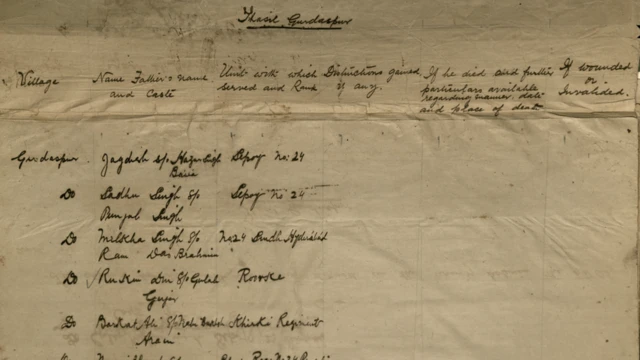 Thasil Gurdaspur
Village Name Father's name Unit with which Distinctions gained If he died and further If wounded
and Caste served and Rank if any. particulars available or
regarding manner, date Invalided.
and place of death
Gurdaspur. Jagdish s/o Sepoy No: 24
Do Sadhu Singh S/o Sepoy No 24
Punjab Singh
Do Milkha Singh S/o No 24 Sindh Hyderabad
Ram Das Brahmin
Do Rukn Din S/o Gulab
Gujar
Do Barkat Ali S/o Khirki Regiment
Arain